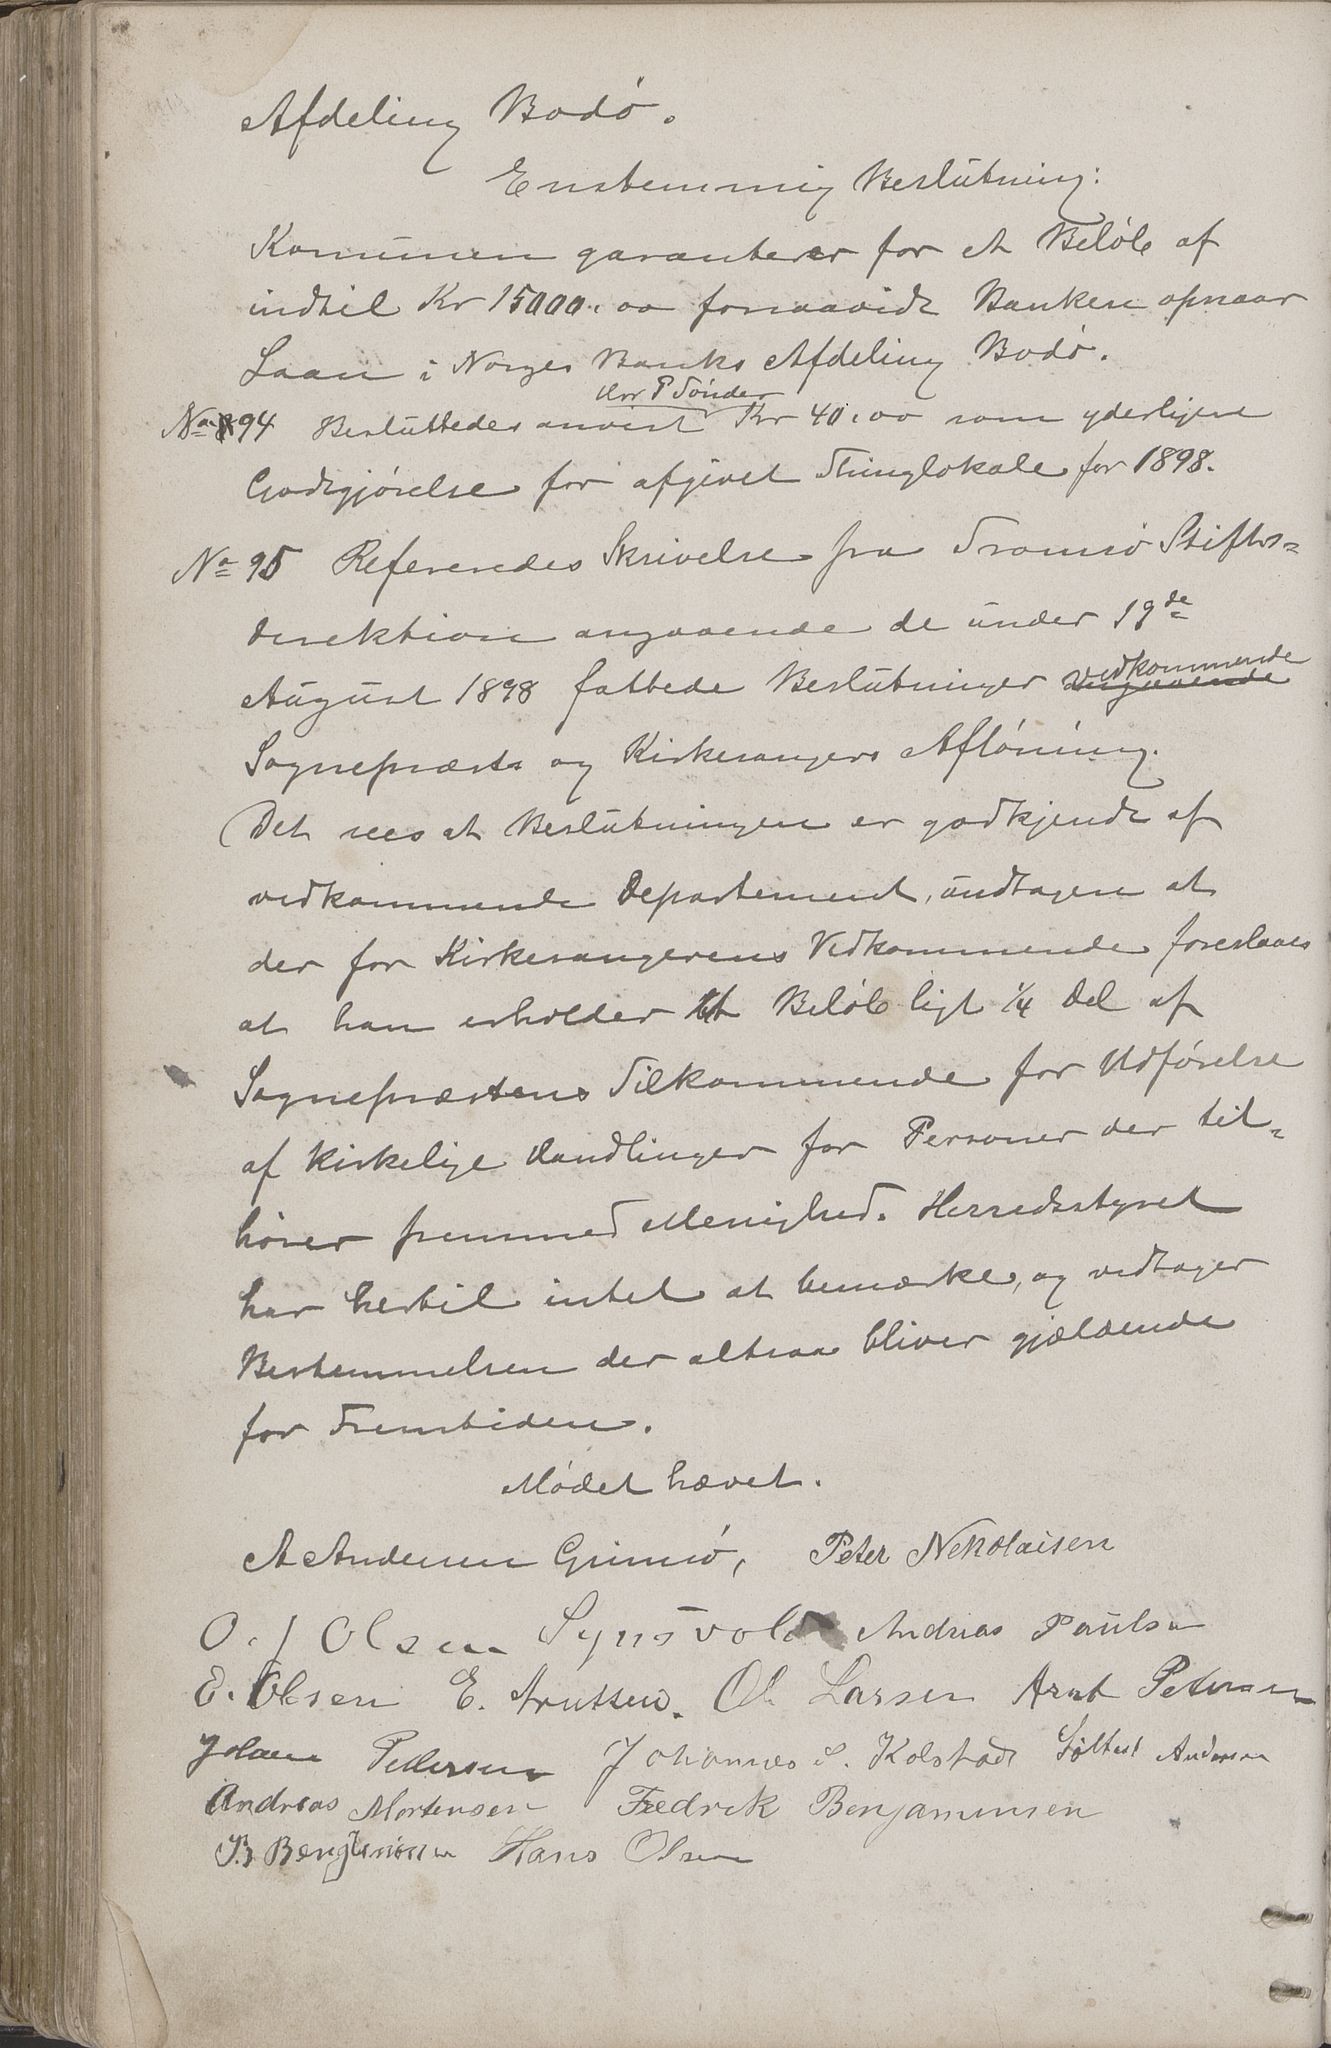 Afdeling Bodø.
Enstemmig Beslutning:
Komunen garanterer for et Beløb af
indtil Kr 15000.00 forsaavidt Banken opnaar
Laan i Norges Banks Afdeling Bodø.
Hrr P Tønder
No 94 Besluttedes anvist Kr 40.00 som yderligere
Godtgjørelse for afgivet Thinglokale for 1898.
No 95 Refereredes Skrivelse fra Tromsø Stifts=
direktion angaaende de under 19de
vedkommende
August 1898 fattede Beslutninger angaaende
Sognepræsts og Kirkesangers Afløning.
Det sees at Beslutningen er godkjendt af
vedkommende Departement, undtagen at
der for Kirkesangerens Vedkommende foreslaaes
at han erholder et Beløb ligt 1/4 Del af
Sognepræstens Tilkommende for Udførelse
af kirkelige Handlinger for Personer der til=
hører fremmed Menighed. Herredsstyret
har hertil intet at bemærke, og vedtager
Bestemmelsen der altsaa bliver gjældende
for Fremtiden.
Mødet hævet.
A Andersen Grimsø, Peter Nikolaisen
O. J Olsen Synsvold Andreas Paulsen
E. Olsen E. Knutsen. Ol. Larsen Arnt Petersen
Johan Pedersen Johannes S. Kolstad Andersen
Andreas Mortensen Fredrik Benjaminsen
B. Benjaminsen Hans Olsen